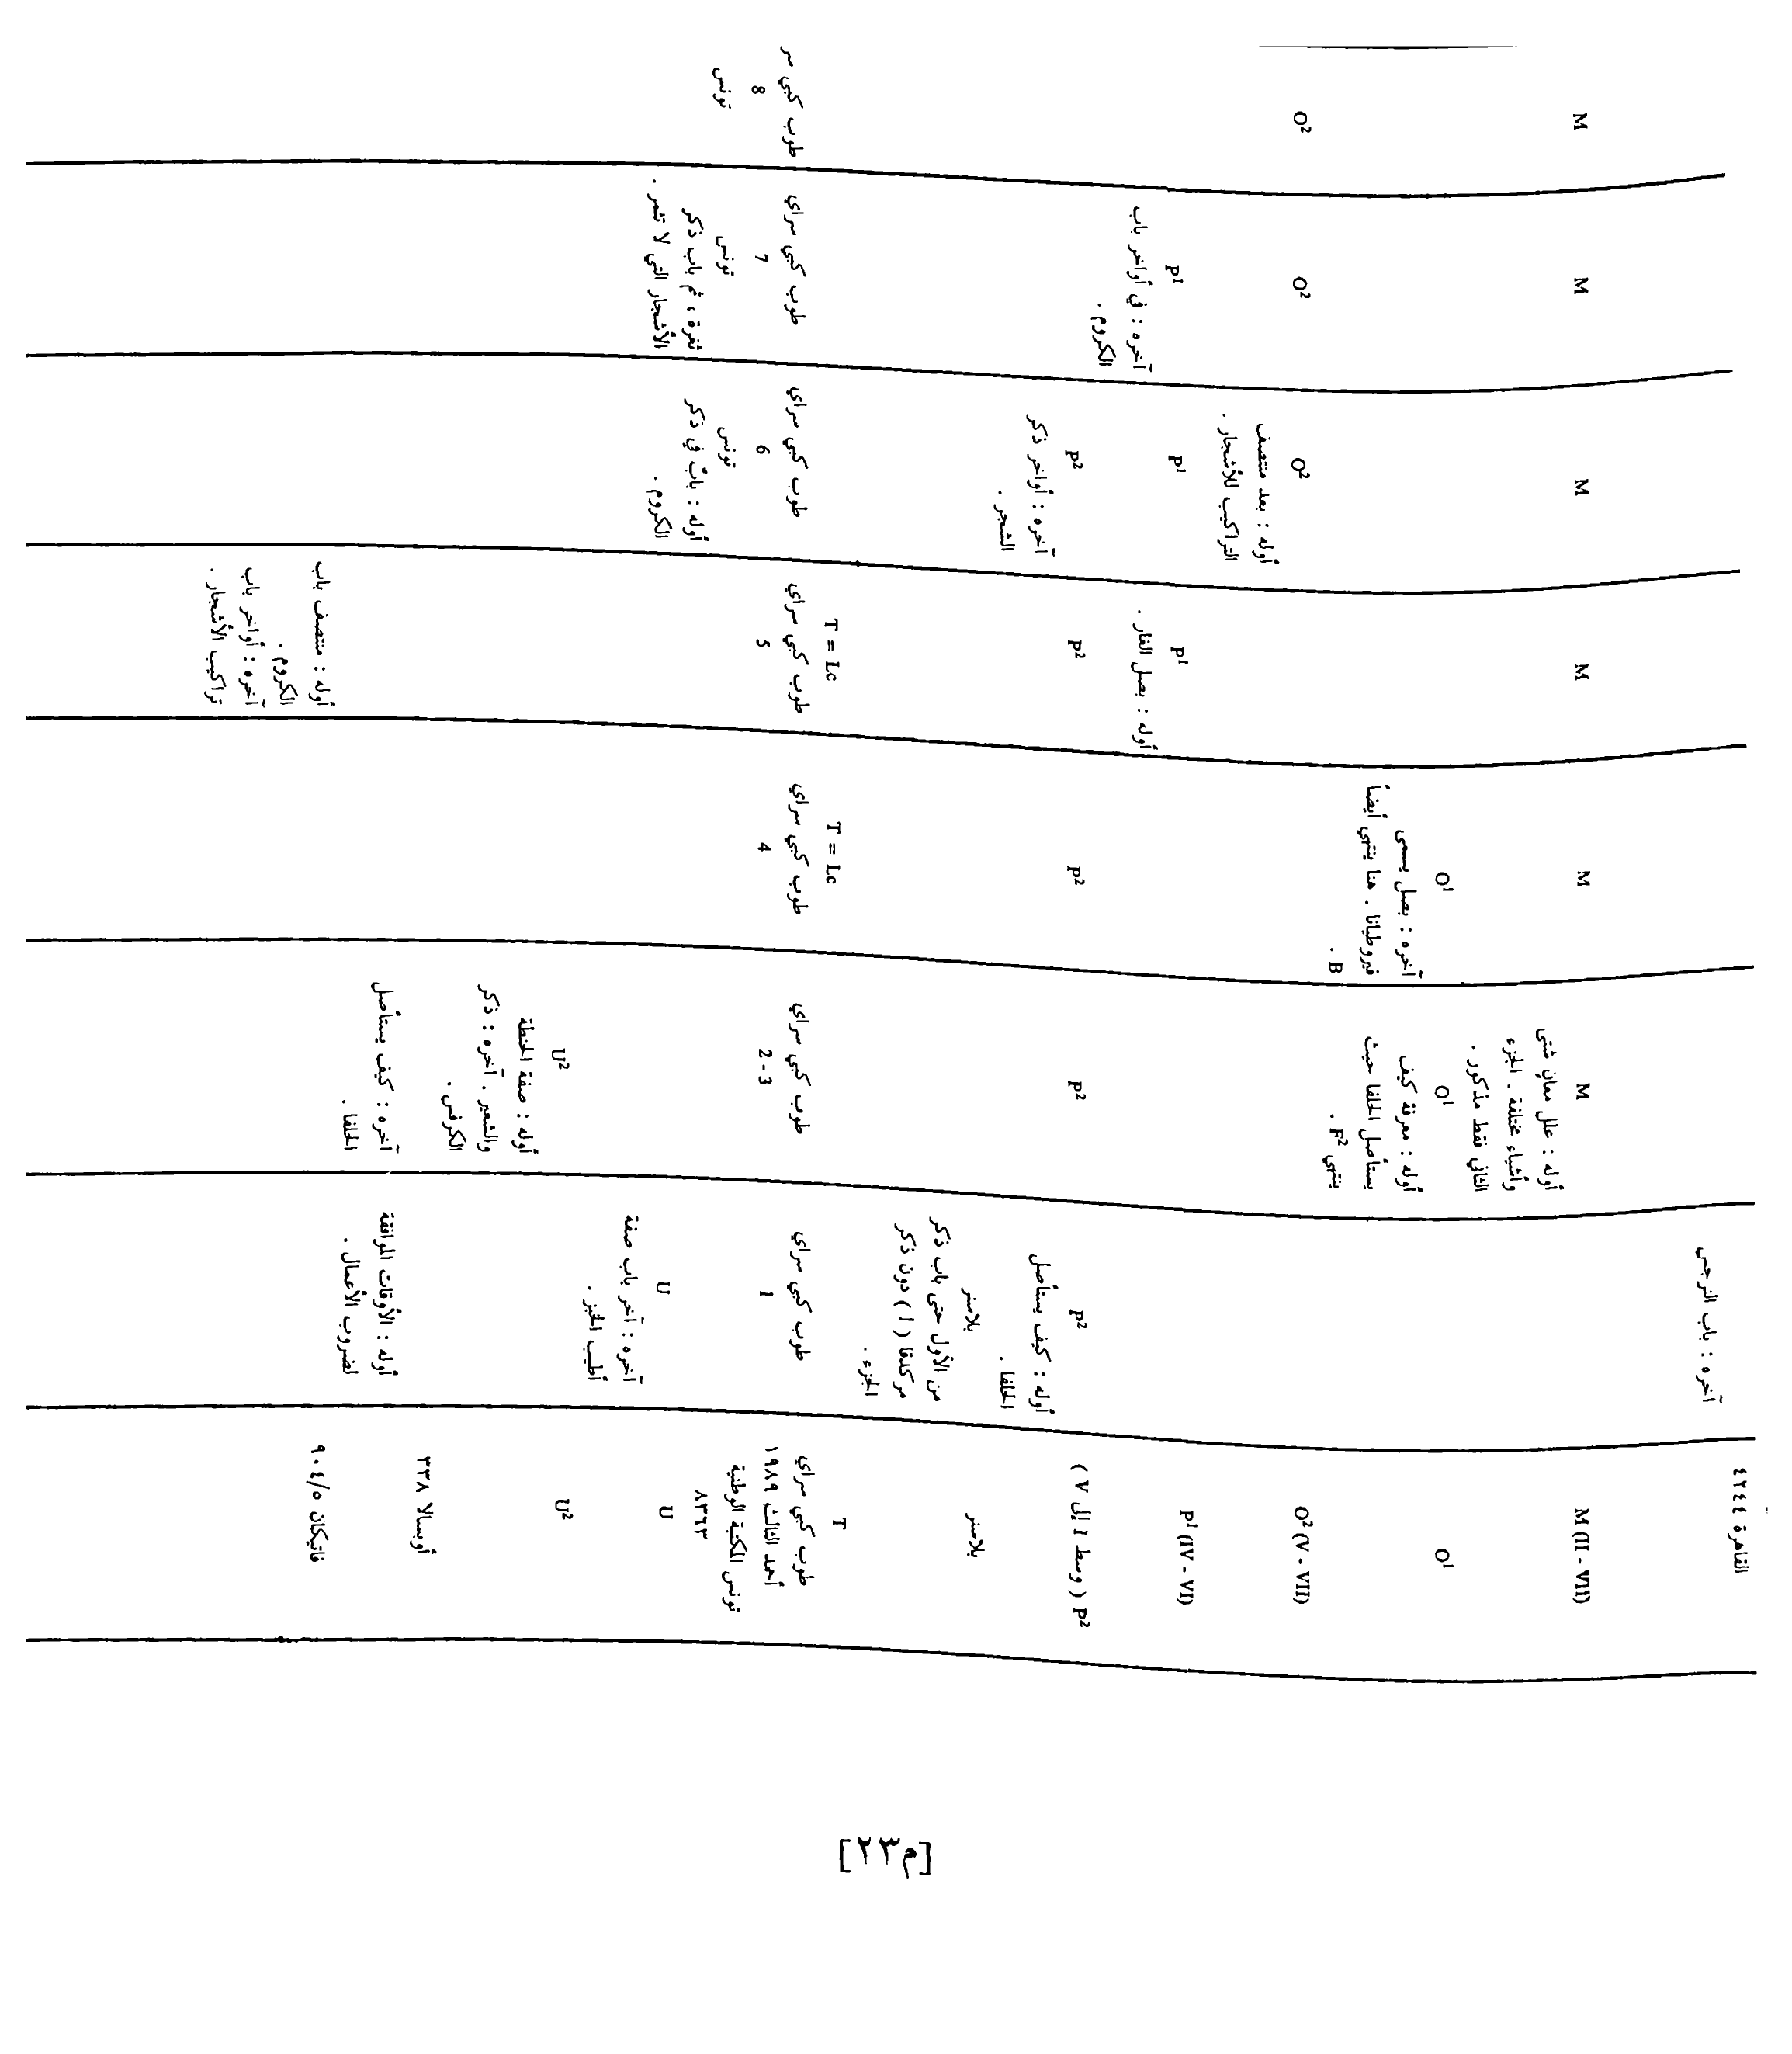 القاهرة ٤٢٤٤
آخره : باب النرجس
M (II - VII)
M
أوله : علل معانٍ شتى
وأشياء مختلفة . الجزء
الثاني فقط مذكور .
M
M
M
M
M
O¹
O¹
أوله : معرفة كيف
يستأصل الحلفا حيث
ينتهي F² .
O¹
آخره : بصل يسمى
فيروطيانا . هنا ينتهي أيضاً
B .
O² (V - VII)
O²
أوله : بعد منتصف
التراكيب للأشجار .
O²
O²
P¹ (IV - VI)
P¹
أوله : بصل الفار .
P¹
P¹
آخره : في أواخر باب
الكروم .
P² ( وسط I إلى V )
P²
أوله : كيف يستأصل
الحلفا .
P²
P²
P²
P²
آخره : أواخر ذكر
الشجر .
بلاسنر
بلاسنر
من الأول حتى باب ذكر
مركدقا ( ا ) دون ذكر
الجزء .
T
طوب كبي سراي
أحمد الثالث ١٩٨٩
تونس المكتبة الوطنية
٨٣٦٣
طوب كبي سراي
1
طوب كبي سراي
2 - 3
T = Lc
طوب كبي سراي
4
T = Lc
طوب كبي سراي
5
طوب كبي سراي
6
تونس
أوله : بابٌ في ذكر
الكروم .
طوب كبي سراي
7
تونس
ثغرة ، ثم باب ذكر
الأشجار التي لا تثمر .
طوب كبي سر
8
تونس
U
U
آخره : آخر باب صفة
أطيب الخبز .
U²
U²
أوله : صفة الحنطة
والشعير . آخره : ذكر
الكرفس .
أوبسالا ٣٣٨
أوله : الأوقات الموافقة
لضروب الأعمال .
آخره : كيف يستأصل
الحلفا .
فاتيكان ٩٠٤/٥
أوله : منتصف باب
الكروم .
آخره : أواخر باب
تراكيب الأشجار .
[م٢٣]